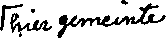 Thier gemeinte